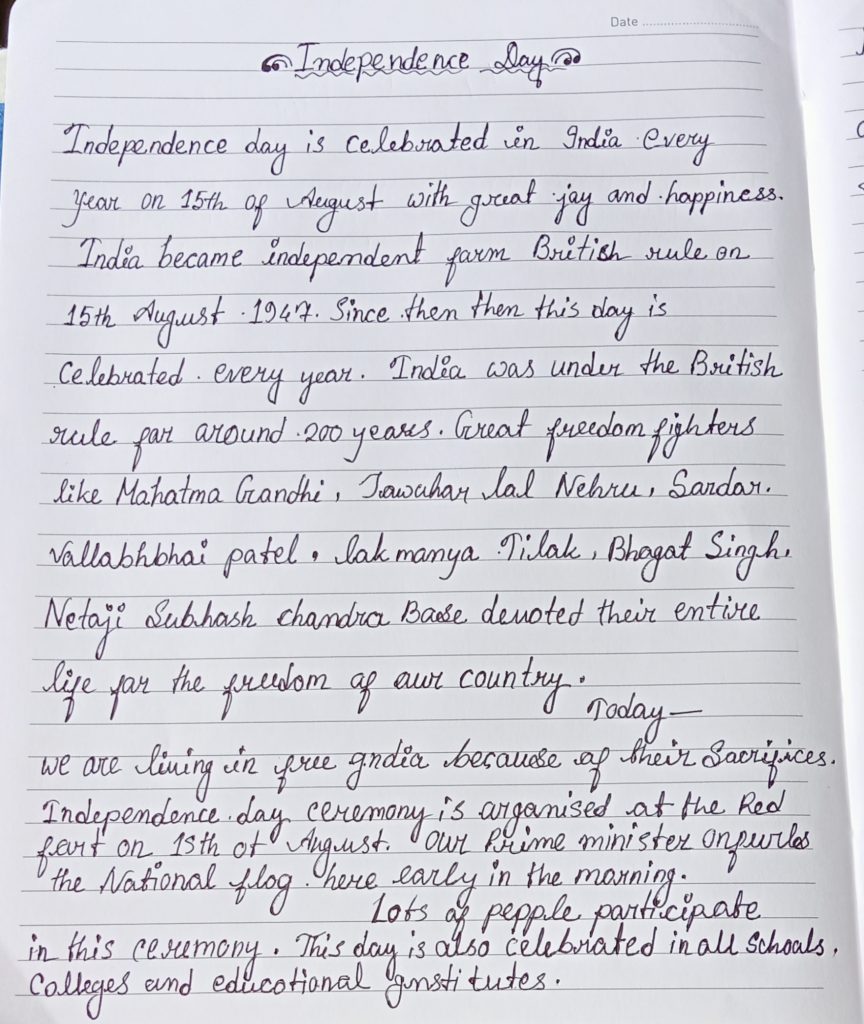 Date
Independence Day
Independence day is celebrated in India every
year on 15th of August with great jay and happiness.
India became independent farm British rule on
15th August 1947. Since then then this day is
celebrated every year. India was under the British
rule far around 200 years. Great freedom fighters
like Mahatma Gandhi, Jawahar lal Nehru, Sardar.
Vallabhbhai patel, lakmanya Tilak, Bhagat Singh,
Netaji Subhash chandra Baose devoted their entire
life far the freedom of aur country.
Today—
we are living in free India because of their Sacrifices.
Independence day ceremony is arganised at the Red
fort on 15th of August. Our Prime minister onpurles
the National flog here early in the marning.
Lots of pepple participate
in this ceremony. This day is also celebrated in all Schoals,
Calleges and educational Institutes.